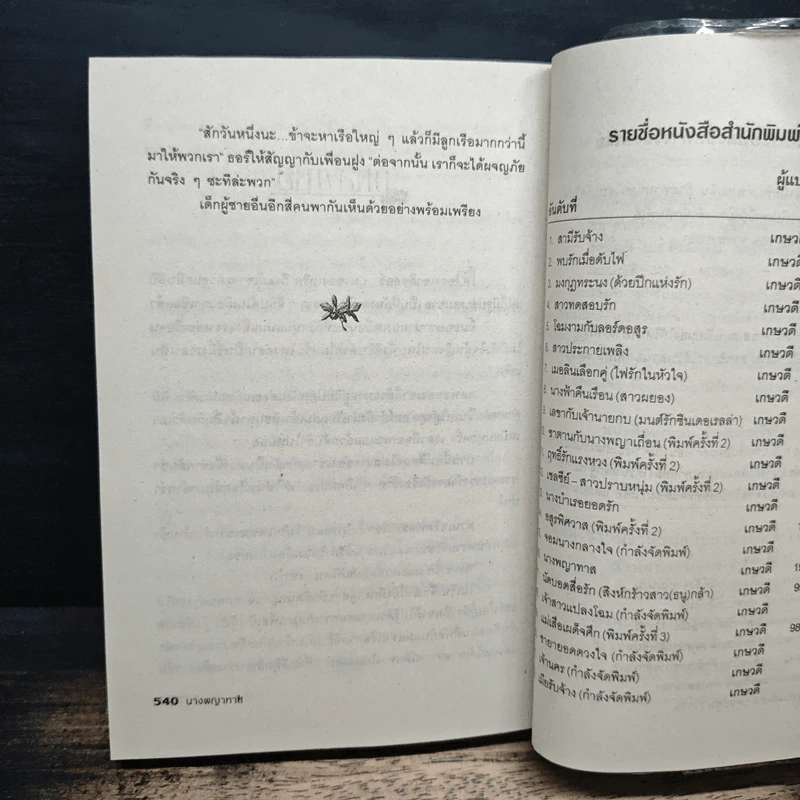 "สักวันหนึ่งนะ...ข้าจะหาเรือใหญ่ ๆ แล้วก็มีลูกเรือมากกว่านี้
มาให้พวกเรา" ธอร์ให้สัญญากับเพื่อนฝูง "ต่อจากนั้น เราก็จะได้ผจญภัย
กันจริง ๆ ซะทีล่ะพวก"
เด็กผู้ชายอื่นอีกสี่คนพากันเห็นด้วยอย่างพร้อมเพรียง
540 นางพญาทาส
รายชื่อหนังสือสำนักพิมพ์
ผู้แป
อันดับที่
1. สามีรับจ้าง เกษวดี
2. พบรักเมื่อดับไฟ เกษวดี
3. มงกุฎทระนง (ด้วยปีกแห่งรัก) เกษวดี
4. สาวทดสอบรัก เกษวดี
5. โฉมงามกับลอร์ดอสูร เกษวดี
6. สาวประกายเพลิง เกษวดี
7. เมอลินเลือกคู่ (ไฟรักในหัวใจ) เกษวดี
8. นางฟ้าคืนเรือน (สาวผยอง) เกษวดี
9. เลขากับเจ้านายกบ (มนต์รักซินเดอเรลล่า) เกษวดี
ซาตานกับนางพญาเถื่อน (พิมพ์ครั้งที่ 2) เกษวดี
ฤทธิ์รักแรงหวง (พิมพ์ครั้งที่ 2) เกษวดี
เชลซีย์-สาวปราบหนุ่ม (พิมพ์ครั้งที่ 2) เกษวดี
นางบำเรอยอดรัก เกษวดี
อสูรพิศวาส (พิมพ์ครั้งที่ 2) เกษวดี
จอมนางกลางใจ (กำลังจัดพิมพ์) เกษวดี
นางพญาทาส เกษวดี
นัดบอดสื่อรัก (สิงห์กร้าวสาว(ธนู)กล้า) เกษวดี
เจ้าสาวแปลงโฉม (กำลังจัดพิมพ์) เกษวดี
แม่เสือเผด็จศึก (พิมพ์ครั้งที่ 3) เกษวดี
ชายายอดดวงใจ (กำลังจัดพิมพ์) เกษวดี
เจ้านคร (กำลังจัดพิมพ์) เกษวดี
เมียรับจ้าง (กำลังจัดพิมพ์) เกษวดี